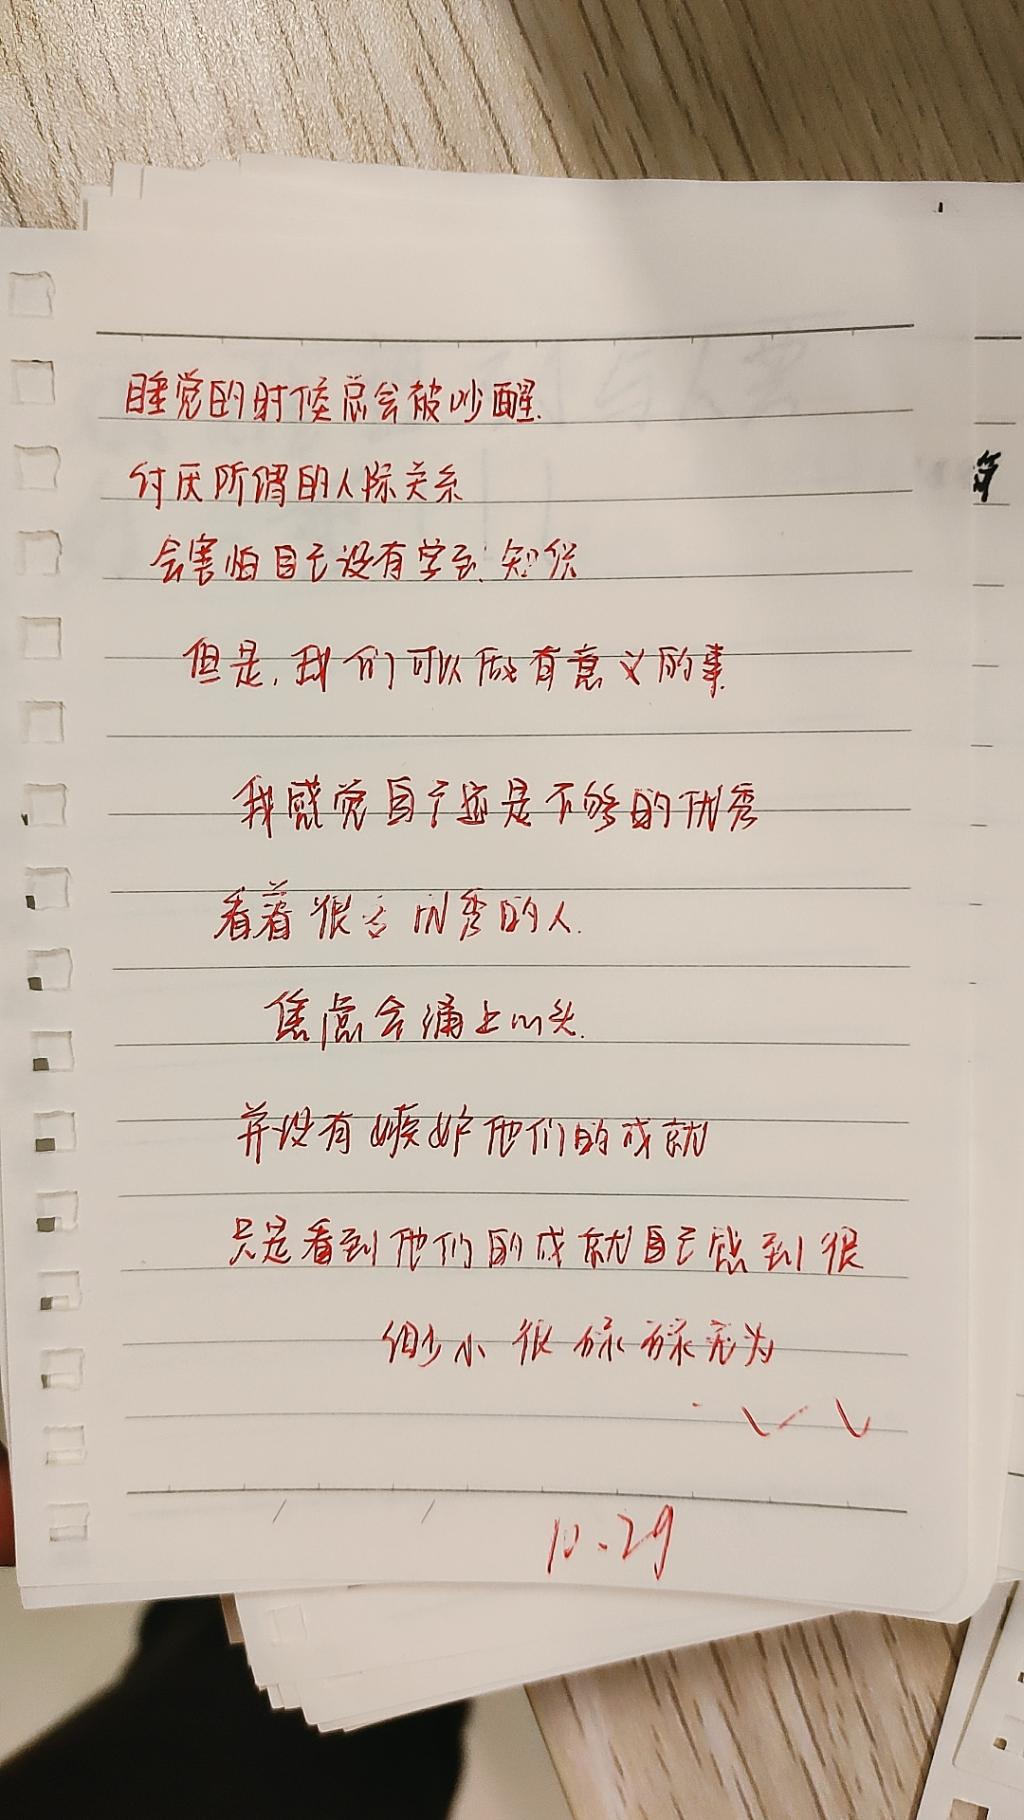 睡觉的时候总会被吵醒.
讨厌所谓的人际关系
会害怕自己没有学到 知识
但是,我们可以做有意义的事
我感觉自己还是不够的优秀
看着很多优秀的人.
焦虑会涌上心头.
并没有嫉妒他们的成就
只是看到他们的成就自己感到很
渺小很碌碌无为
10.29